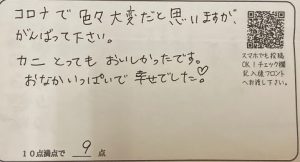 コロナで色々大変だと思いますが、
がんばって下さい。
カニとってもおいしかったです。
おなかいっぱいで幸せでした♡
スマホでも投稿
OK！チェック欄
記入後フロント
へお渡し下さい。
10点満点で 9 点